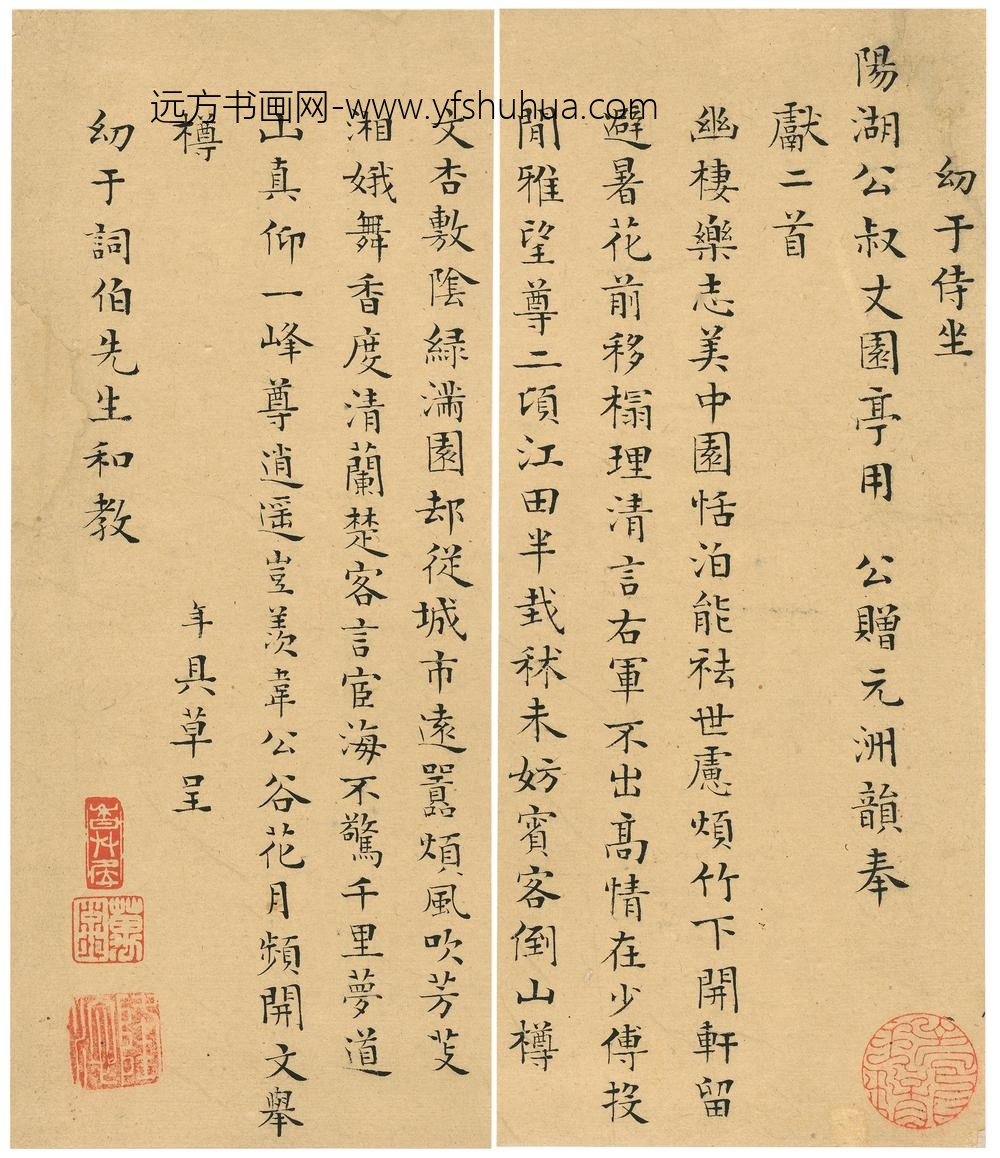 远方书画网-www.yfshuhua.com
幼于侍坐
陽湖公叔丈園亭用 公贈元洲韻奉
獻二首
幽棲樂志美中園恬泊能祛世慮煩竹下開軒留
避暑花前移榻理清言右軍不出高情在少傅投
閒雅望尊二頃江田半栽秫未妨賓客倒山樽
文杏敷陰綠滿園却從城市遠囂煩風吹芳芰
湘娥舞香度清蘭楚客言宦海不驚千里夢道
山真仰一峰尊逍遥豈羨韋公谷花月頻開文舉
樽
年具草呈
幼于詞伯先生和教